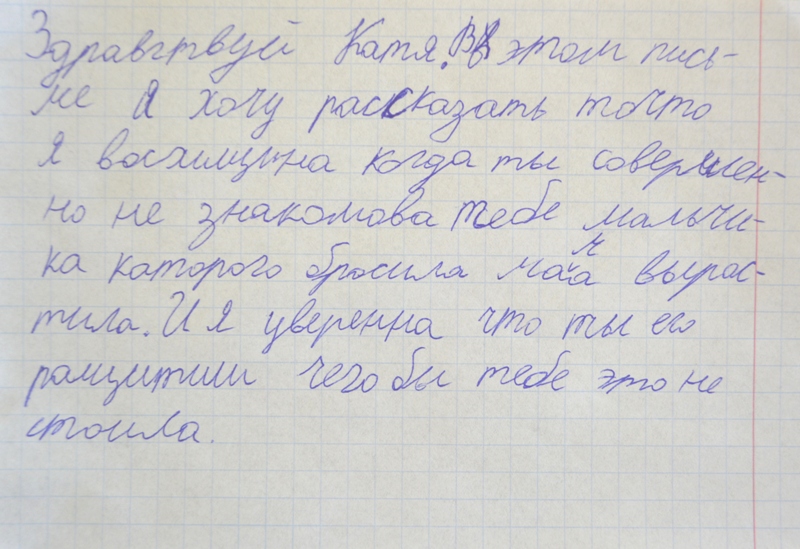 Здравствуй Катя. В этом пись-
ме я хочу рассказать точто
я восхищина когда ты совершен-
но не знакомова тебе мальчи-
ка каторого бросила мама вырос-
тила. И я уверенна что ты его
чего бы тебе это не
стоила.